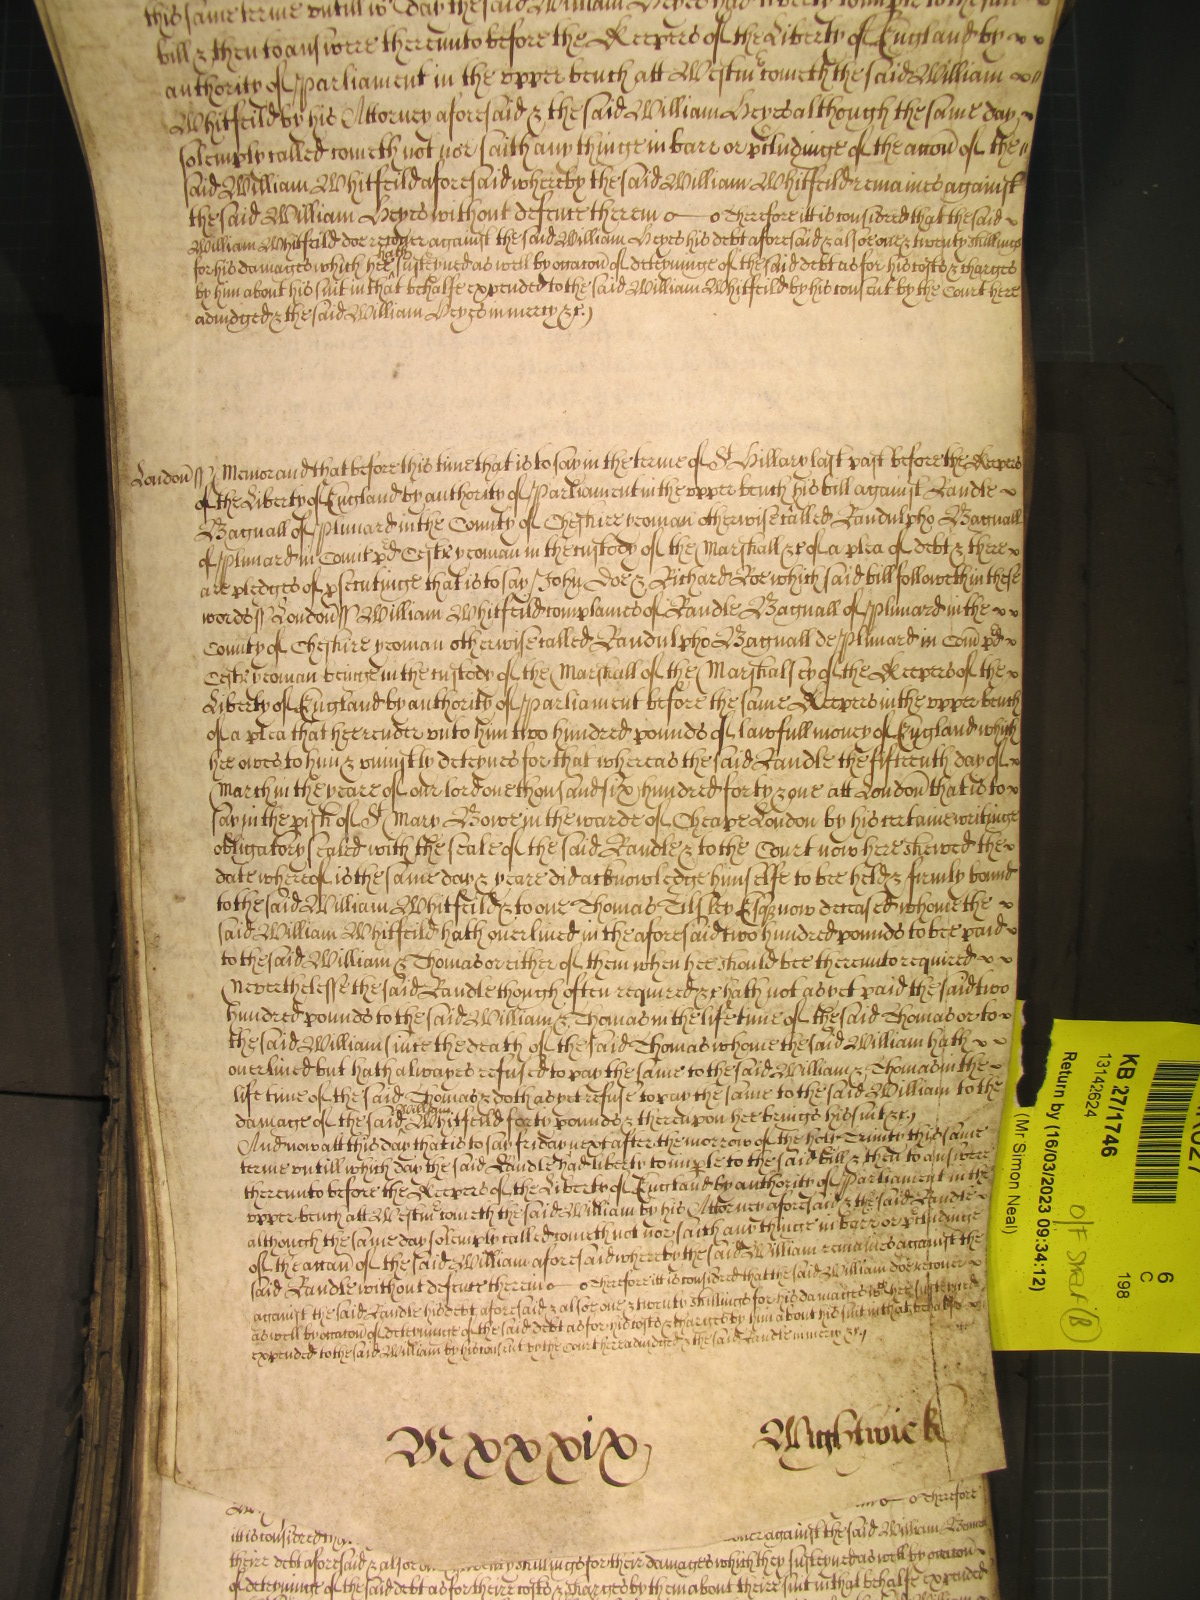 this same terme untill wch day the said William Heyes had liberty to imple to the said
bill & then to answere thereunto before the Keepers of the Liberty of England by
authority of Parliament in the upper bench att Westm cometh the said William
Whitfeild by his Attorney aforesaid & the said William Heyes although the same day
solemply called cometh not nor saith any thinge in barr or pcludinge of the accon of the
said William Whitfeild aforesaid whereby the said William Whitfeild remaines against
the said William Heyes without defence therein Therefore it is considered that the said
William Whitfeild doe recover against the said William Heyes his debt aforesaid & alsoe one & twenty shillings
for his damages which hee hath susteyned as well by occacon of deteyninge of the said debt as for his costs & charges
by him about his suit in that behalfe expended to the said William Whitfeild by his consent by the Court here
adiudged & the said William Heyes in mercy &c.
London ss Memorand that before this time that is to say in the terme of St Hillary last past before the Keepers
of the Liberty of England by authority of Parliament in the upper bench his bill against Randle
Bagnall of Plimard in the County of Cheshire yeoman otherwise called Randulpho Bagnall
of Plimard in Com pd Cestr yeoman in the custody of the Marshall &c of a plea of debt & there
are pledges of psecutinge that is to say John Doe & Richard Roe which said bill followeth in these
words ss London ss William Whitfeild complaines of Randle Bagnall of Plimard in the
County of Cheshire yeoman otherwise called Randulpho Bagnall de Plimard in Com pd
Cestr yeoman beinge in the custody of the Marshall of the Marshalsey of the Keepers of the
Liberty of England by authority of Parliament before the same Keepers in the upper bench
of a plea that hee render unto him two hundred pounds of lawfull money of England which
hee owes to him & uniustly deteynes for that whereas the said Randle the fifteenth day of
March in the yeare of our lord one thousand six hundred forty & one att London that is to
say in the pish of St Mary Bowe in the warde of Cheape London by his certaine writinge
obligatory sealed with the seale of the said Randle & to the Court now here shewed the
date whereof is the same day & yeare did acknowledge himselfe to bee held & firmly bound
to the said William Whitfeild & to one Thomas Tilsley Esqr now deceased whome the
said William Whitfeild hath overlived in the aforesaid two hundred pounds to bee paid
to the said William & Thomas or either of them when hee should bee thereunto required
Neverthelesse the said Randle though often required &c hath not as yet paid the said two
hundred pounds to the said William & Thomas in the life time of the said Thomas or to
the said William since the death of the said Thomas whome the said William hath
overlived but hath alwayes refused to pay the same to the said William & Thomas in the
life time of the said Thomas & doth as yet refuse to pay the same to the said William to the
damage of the said William Whitfeild forty pounds & thereupon hee brings his suit &c.
And now att this day that is to say friday next after the morrow of the holy Trinity this same
terme untill which day the said Randle had liberty to imple to the said bill & then to answere
thereunto before the Keepers of the Liberty of England by authority of Parliament in the
upper bench att Westm cometh the said William by his Attorney aforesaid & the said Randle
although the same day solemply called cometh not nor saith any thinge in barr or pcludinge
of the accon of the said William aforesaid whereby the said William remaines against the
said Randle without defence therein Therefore it is considered that the said William doe recover
against the said Randle his debt aforesaid & alsoe one & twenty shillings for his damages wch hee susteyned
as well by occacon of deteyninge of the said debt as for his costs & charges by him about his suit in that behalfe
expended to the said William by his consent by the Court here adiudged & the said Randle in mercy &c.
Mxxxix Wightwick
Therefore
it is considered against the said William
theire debt aforesaid & alsoe shillings for their damages which they susteyned as well by occacon
of deteyninge of the said debt as for theire costs & charges by them about theire suit in that behalfe expended
KB 27/1746
13142624
Return by (16/03/2023 09:34:12)
(Mr Simon Neal)
6
C
198